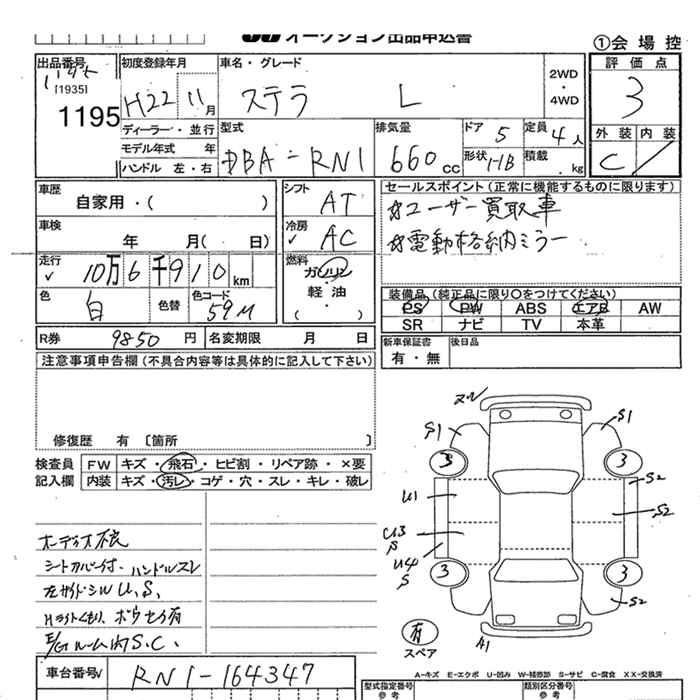 オークション出品申込書
①会場控
出品番号
[1935]
1195
初度登録年月
H22 11月
車名・グレード
ステラ L
2WD
・
4WD
評価点
3
外装 内装
C
ディーラー・並行
モデル年式 年
ハンドル 左・右
型式
DBA-RN1
排気量
660cc
ドア 5
定員 4人
形状 HB
積載 .kg
車歴
自家用・( )
車検
年 月( 日)
走行
10万6千910km
色
白
色替
色コード
59M
シフト
AT
冷房
AC
燃料
ガソリン
軽油
( )
セールスポイント(正常に機能するものに限ります)
☆ユーザー買取車
☆電動格納ミラー
装備品(純正品に限り○をつけてください)
PS PW ABS エアB AW
SR ナビ TV 本革
新車保証書
有・無
後日品
R券 9850円
名変期限 月 日
注意事項申告欄(不具合内容等は具体的に記入して下さい)
修復歴 有 〔箇所 〕
検査員
記入欄
FW キズ・飛石・ヒビ割・リペア跡・×要
内装 キズ・汚レ・コゲ・穴・スレ・キレ・破レ
オーディオ不良
シートカバー付. ハンドルスレ
左サイドシルU.S.
Hライトくもり. ボウセイ有
E/Gルーム内S.C.
車台番号
RN1-164347
S1
S1
3
3
S2
U1
S2
U3
S
U4
S
3
3
S2
A1
有
スペア
A-キズ E-エクボ U-凹み W-補修跡 S-サビ C-腐食 XX-交換済
型式指定番号
参考
類別区分番号
参考